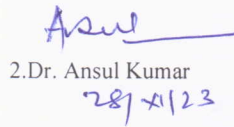 Ansul
2.Dr. Ansul Kumar
28/XI/23